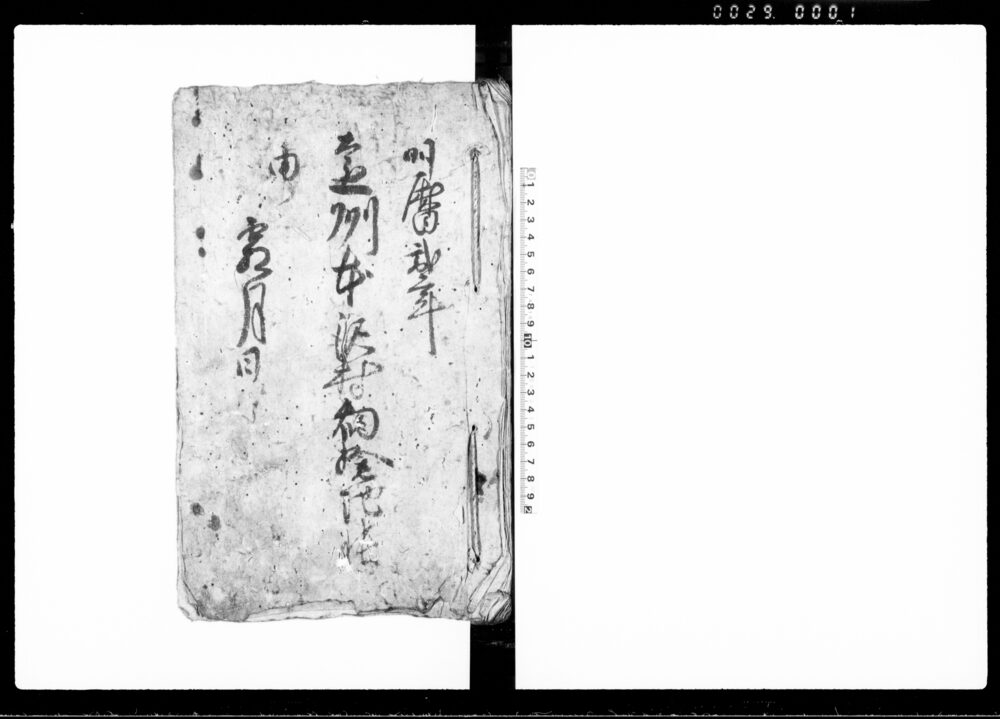 0029 0001
明暦弐年
遠州本沢村御検地帳
申
霜月日
0 1 2 3 4 5 6 7 8 9 10 1 2 3 4 5 6 7 8 9